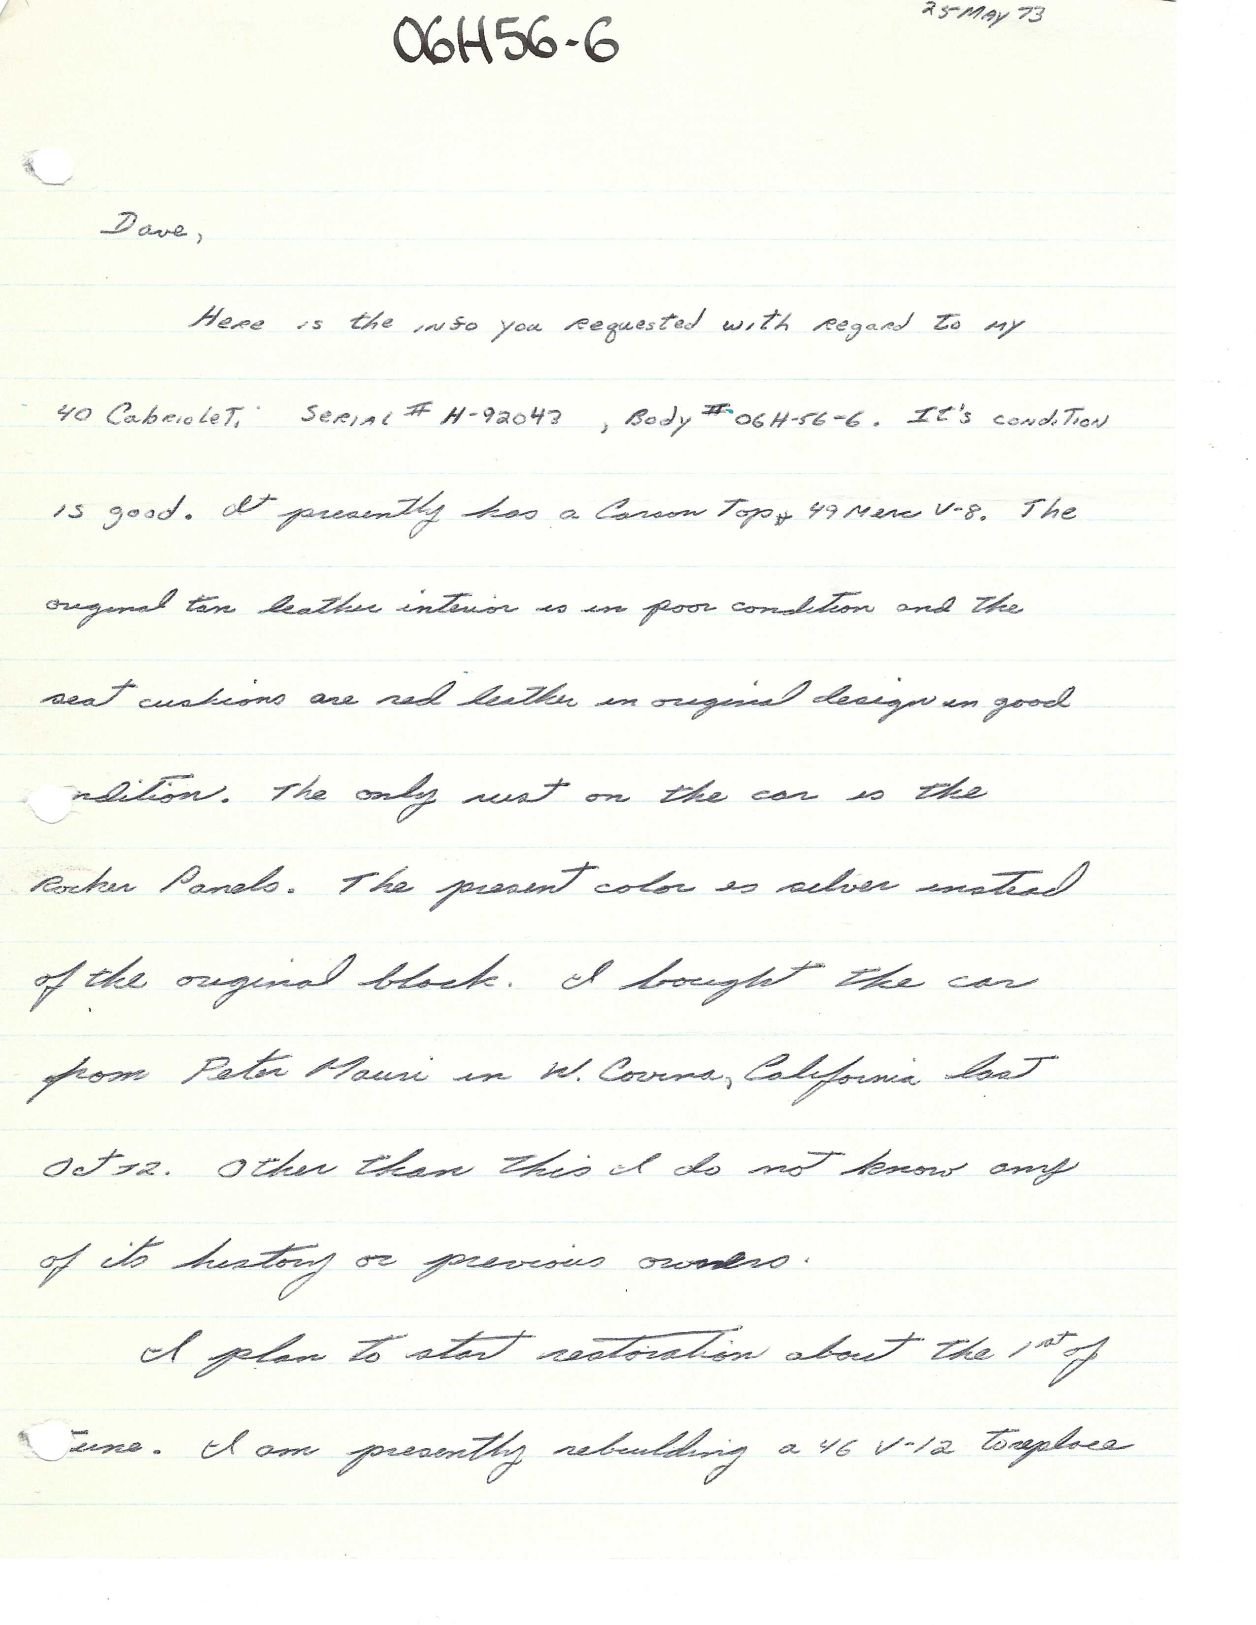 25 MAY 73
06H56-6
Dave,
Here is the info you requested with regard to my
40 Cabriolet; Serial # H-92043 , Body # 06H-56-6. It's condition
is good. It presently has a Carson Top & 49 Merc V-8. The
original tan leather interior is in poor condition and the
seat cushions are red leather in original design in good
ndition. The only rust on the car is the
Rocker Panels. The present color is silver instead
of the original black. I bought the car
from Peter Mauri in W. Covina, California last
Oct 72. Other than this I do not know any
of its history or previous owners.
I plan to start restoration about the 1st of
June. I am presently rebuilding a 46 V-12 to replace